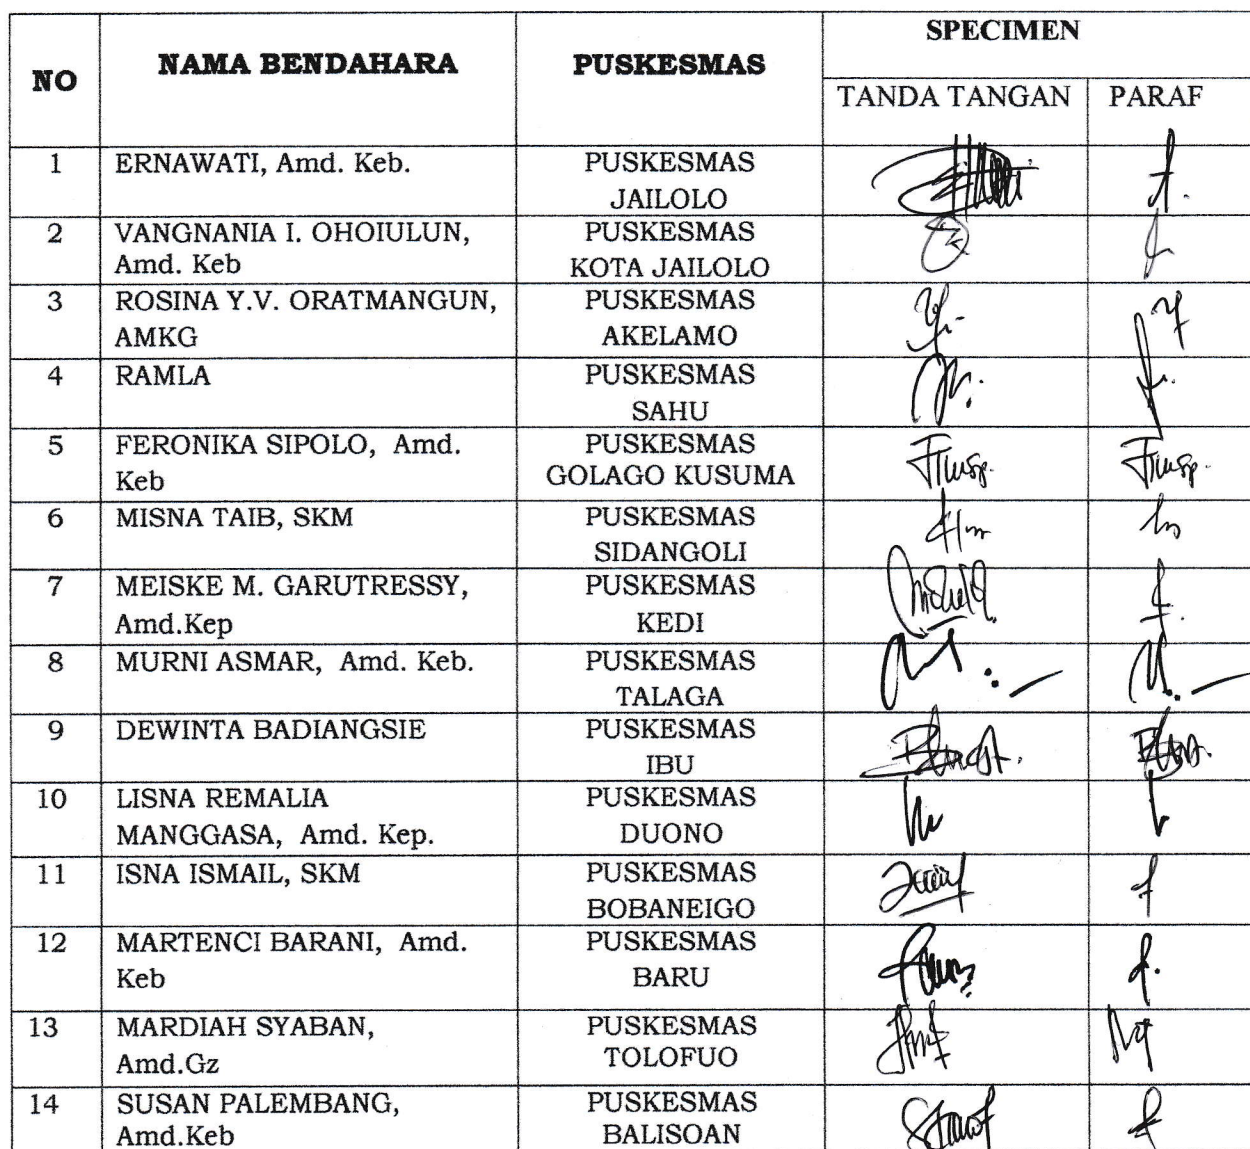 NO
NAMA BENDAHARA
PUSKESMAS
SPECIMEN
TANDA TANGAN
PARAF
1
ERNAWATI, Amd. Keb.
PUSKESMAS
JAILOLO
2
VANGNANIA I. OHOIULUN,
Amd. Keb
PUSKESMAS
KOTA JAILOLO
3
ROSINA Y.V. ORATMANGUN,
AMKG
PUSKESMAS
AKELAMO
4
RAMLA
PUSKESMAS
SAHU
5
FERONIKA SIPOLO, Amd.
Keb
PUSKESMAS
GOLAGO KUSUMA
6
MISNA TAIB, SKM
PUSKESMAS
SIDANGOLI
7
MEISKE M. GARUTRESSY,
Amd.Kep
PUSKESMAS
KEDI
8
MURNI ASMAR, Amd. Keb.
PUSKESMAS
TALAGA
9
DEWINTA BADIANGSIE
PUSKESMAS
IBU
10
LISNA REMALIA
MANGGASA, Amd. Kep.
PUSKESMAS
DUONO
11
ISNA ISMAIL, SKM
PUSKESMAS
BOBANEIGO
12
MARTENCI BARANI, Amd.
Keb
PUSKESMAS
BARU
13
MARDIAH SYABAN,
Amd.Gz
PUSKESMAS
TOLOFUO
14
SUSAN PALEMBANG,
Amd.Keb
PUSKESMAS
BALISOAN